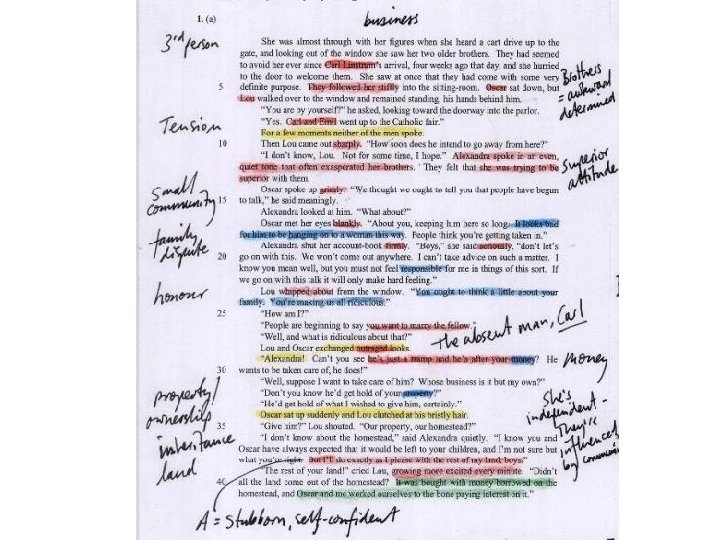 1. (a)
business
3rd person
She was almost through with her figures when she heard a cart drive up to the
gate, and looking out of the window she saw her two older brothers. They had seemed
to avoid her ever since Carl Linstrum's arrival, four weeks ago that day, and she hurried
to the door to welcome them. She saw at once that they had come with some very
5 definite purpose. They followed her stiffly into the sitting-room. Oscar sat down, but
Lou walked over to the window and remained standing, his hands behind him.
Brothers
= awkward
determined
"You are by yourself?" he asked, looking toward the doorway into the parlor.
"Yes. Carl and Emil went up to the Catholic fair."
Tension
For a few moments neither of the men spoke.
10 Then Lou came out sharply. "How soon does he intend to go away from here?"
"I don't know, Lou. Not for some time, I hope." Alexandra spoke in an even,
quiet tone that often exasperated her brothers. They felt that she was trying to be
superior with them.
Superior
attitude
Oscar spoke up grimly. "We thought we ought to tell you that people have begun
15 to talk," he said meaningly.
small
community
Alexandra looked at him. "What about?"
Oscar met her eyes blankly. "About you, keeping him here so long. It looks bad
for him to be hanging on to a woman this way. People think you're getting taken in."
family
dispute
Alexandra shut her account-book firmly. "Boys," she said seriously, "don't let's
20 go on with this. We won't come out anywhere. I can't take advice on such a matter. I
know you mean well, but you must not feel responsible for me in things of this sort. If
we go on with this talk it will only make hard feeling."
honour
Lou whipped about from the window. "You ought to think a little about your
family. You're making us all ridiculous."
25 "How am I?"
"People are beginning to say you want to marry the fellow."
"Well, and what is ridiculous about that?"
the absent man, Carl
Lou and Oscar exchanged outraged looks.
"Alexandra! Can't you see he's just a tramp and he's after your money? He
money
30 wants to be taken care of, he does!"
"Well, suppose I want to take care of him? Whose business is it but my own?"
"Don't you know he'd get hold of your property?"
"He'd get hold of what I wished to give him, certainly."
Oscar sat up suddenly and Lou clutched at his bristly hair.
property/
ownership
inheritance
land
She's
independent -
They're
influenced
by
35 "Give him?" Lou shouted. "Our property, our homestead?"
"I don't know about the homestead," said Alexandra quietly. "I know you and
Oscar have always expected that it would be left to your children, and I'm not sure but
what you're right. But I'll do exactly as I please with the rest of my land, boys."
"The rest of your land!" cried Lou, growing more excited every minute. "Didn't
40 all the land come out of the homestead? It was bought with money borrowed on the
homestead, and Oscar and me worked ourselves to the bone paying interest on it."
A = stubborn, self-confident